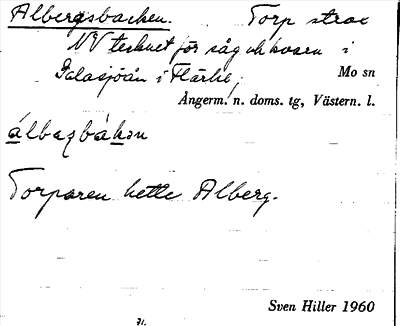 Albergsbacken. Torp strax
NV tecknet för såg och kvarn i
Galasjöån i Flärke,
Mo sn
Ångerm. n. doms. tg, Västern. l.
álbaʒbákən
Torparen hette Alberg.
Sven Hiller 1960